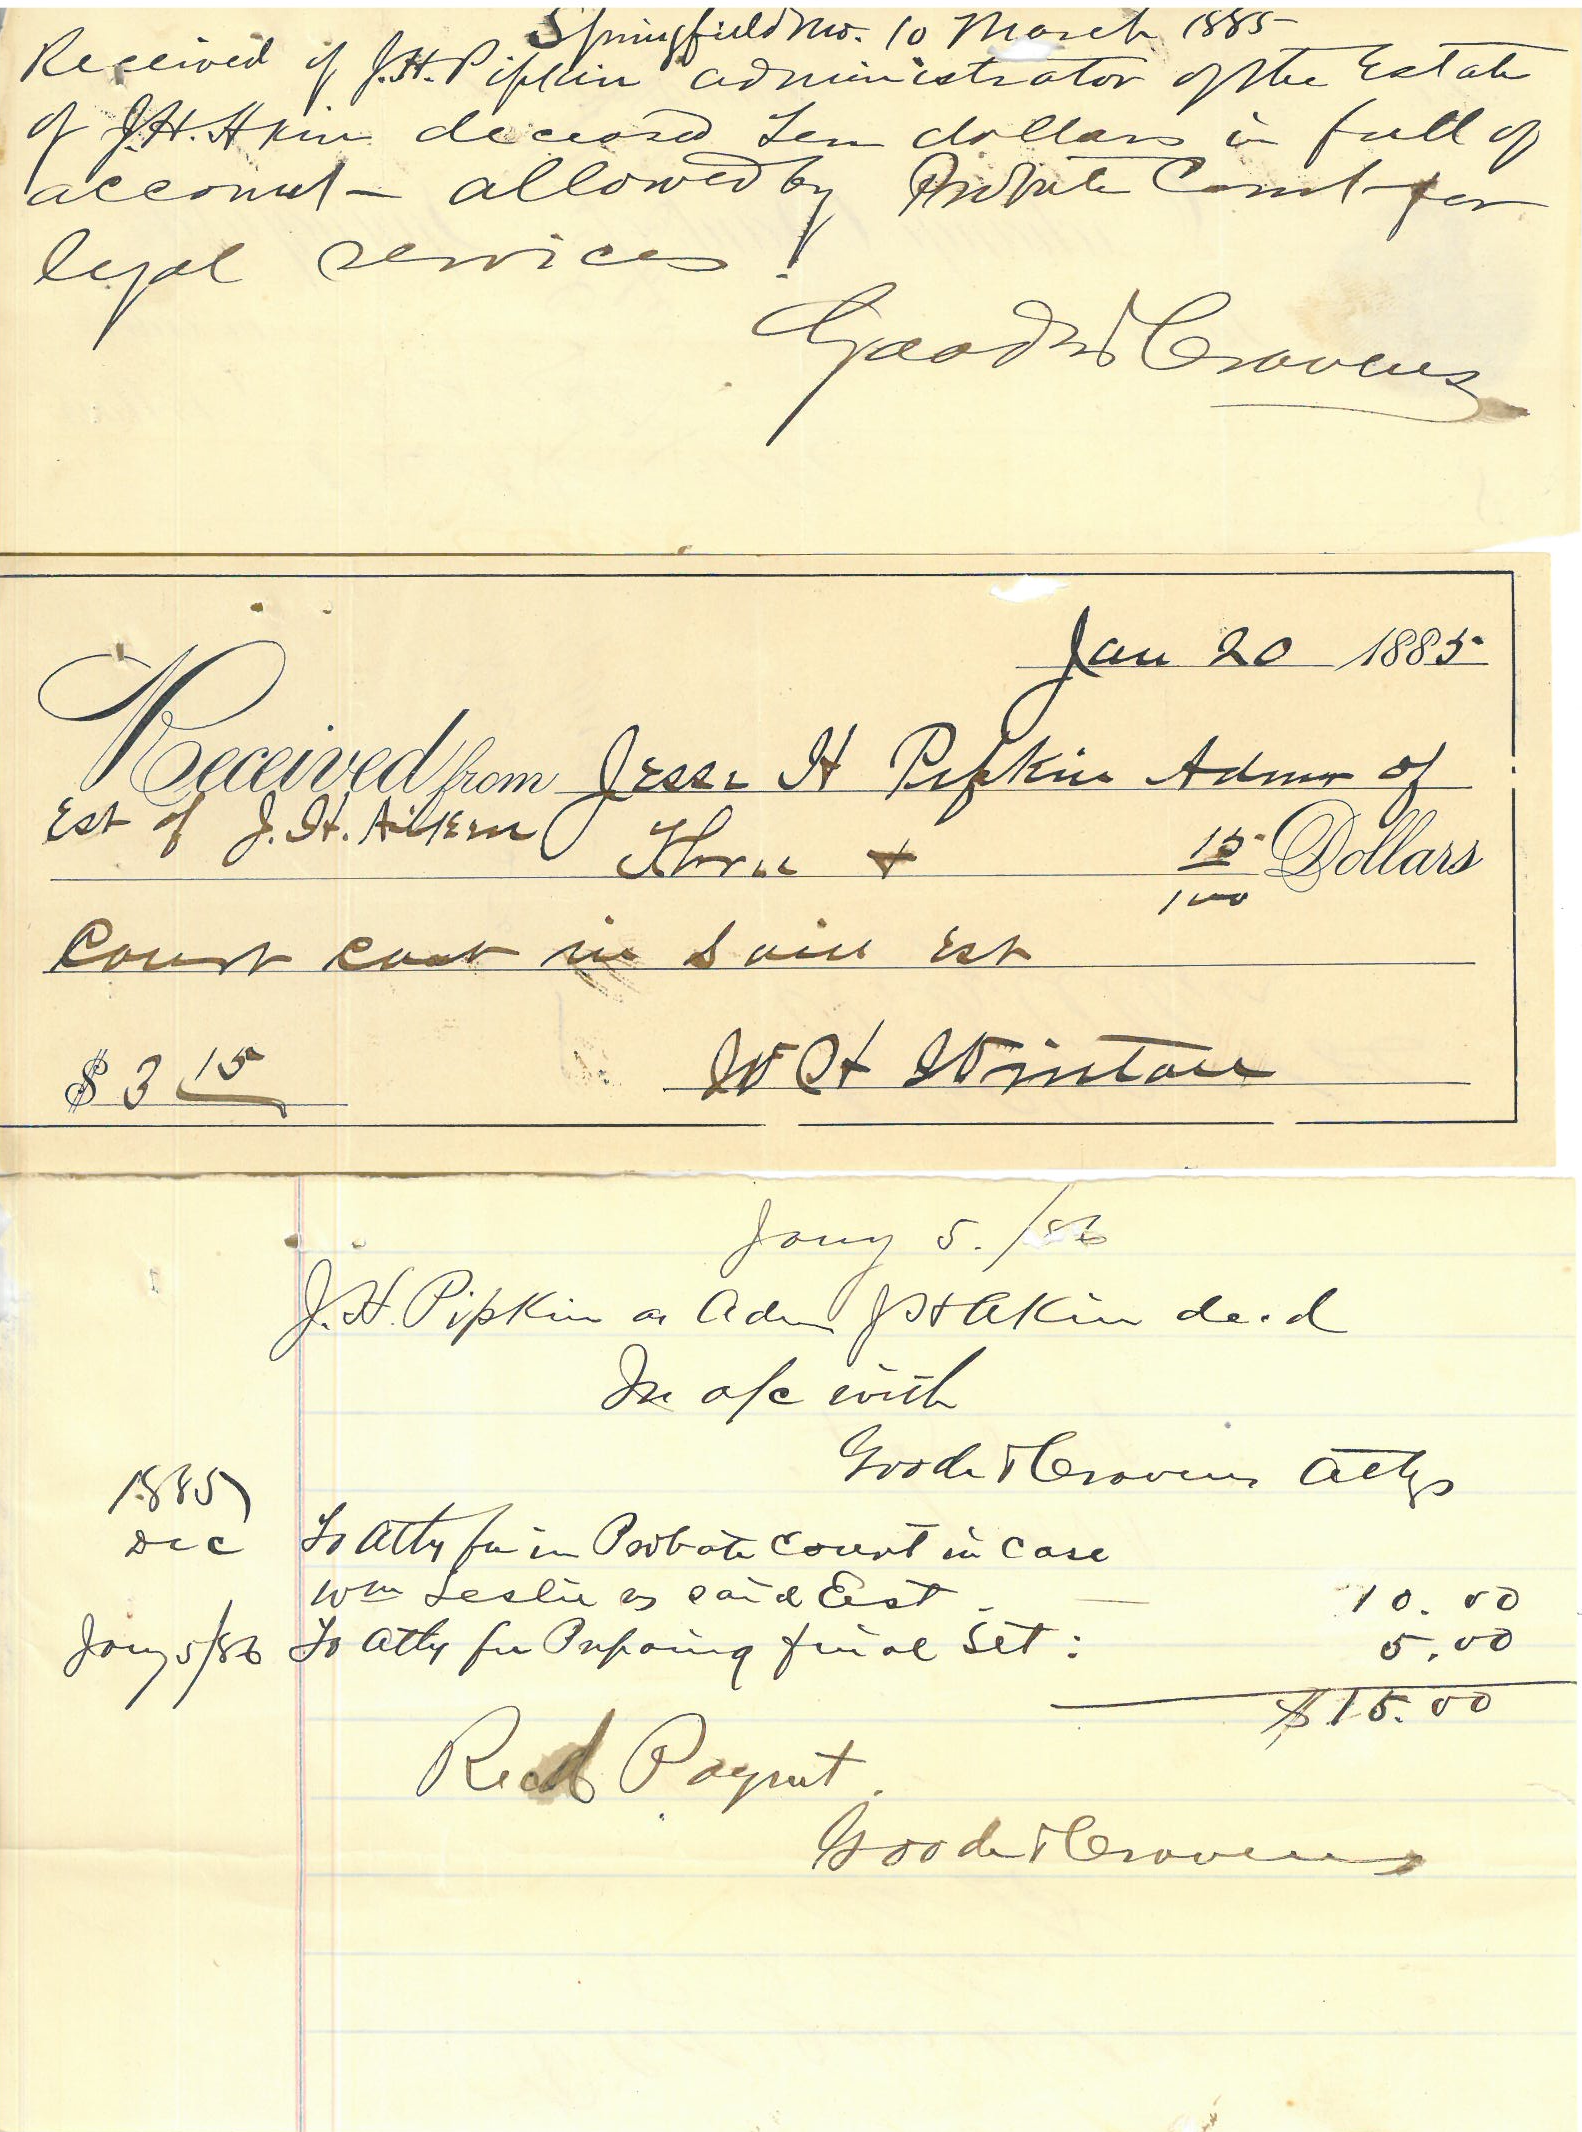 Springfield Mo. 10 March 1885
Received of J.H. Pipkin administrator of the Estate
of J.H. Akin deceased Ten dollars in full of
account allowed by Probate Court for
legal services.
Goode & Cravens
Jan 20 1885
Received from Jesse H Pipkin Admr of
Est of J. H. Aikern Three & 15/100 Dollars
Court cost in Said Est
$ 3 15 W H Winton
Jany 5. /86
J. H. Pipkin as Adm J H Akin decd
In a/c with
Goode & Cravens Attys
1885
Dec To Atty fee in Probate Court in case
Wm Leslie vs said Est. — 10.00
Jany 5/86 To Atty fee Preparing final Set : 5.00
$15.00
Recd Paymt.
Goode & Cravens